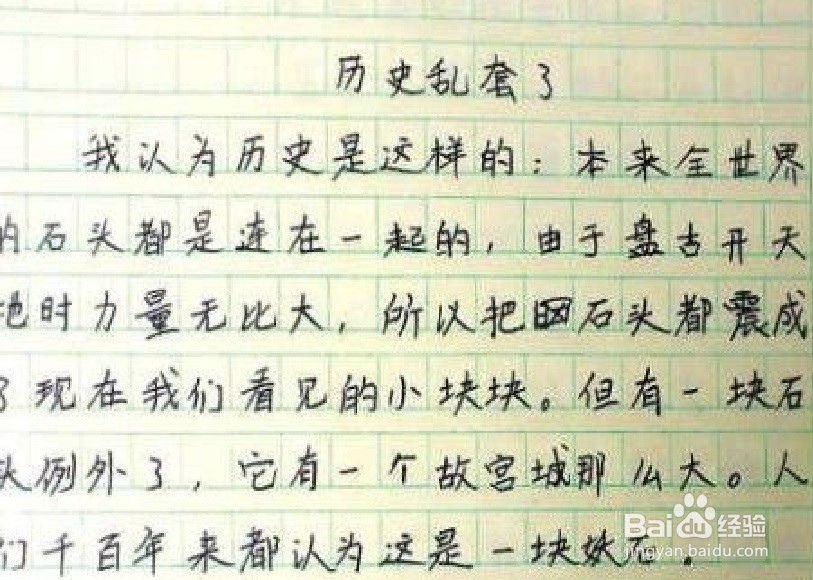 历史乱套了
我认为历史是这样的：本来全世界
的石头都是连在一起的，由于盘古开天
地时力量无比大，所以把石头都震成
了现在我们看见的小块块。但有一块石
头例外了，它有一个故宫城那么大。人
们千百年来都认为这是一块妖石。
Baidu经验
jingyan.baidu.com